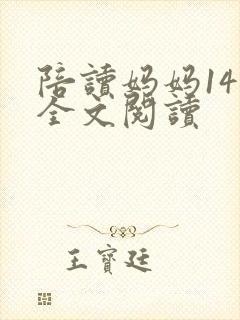 陪讀妈妈14
全文閱讀
王寶廷